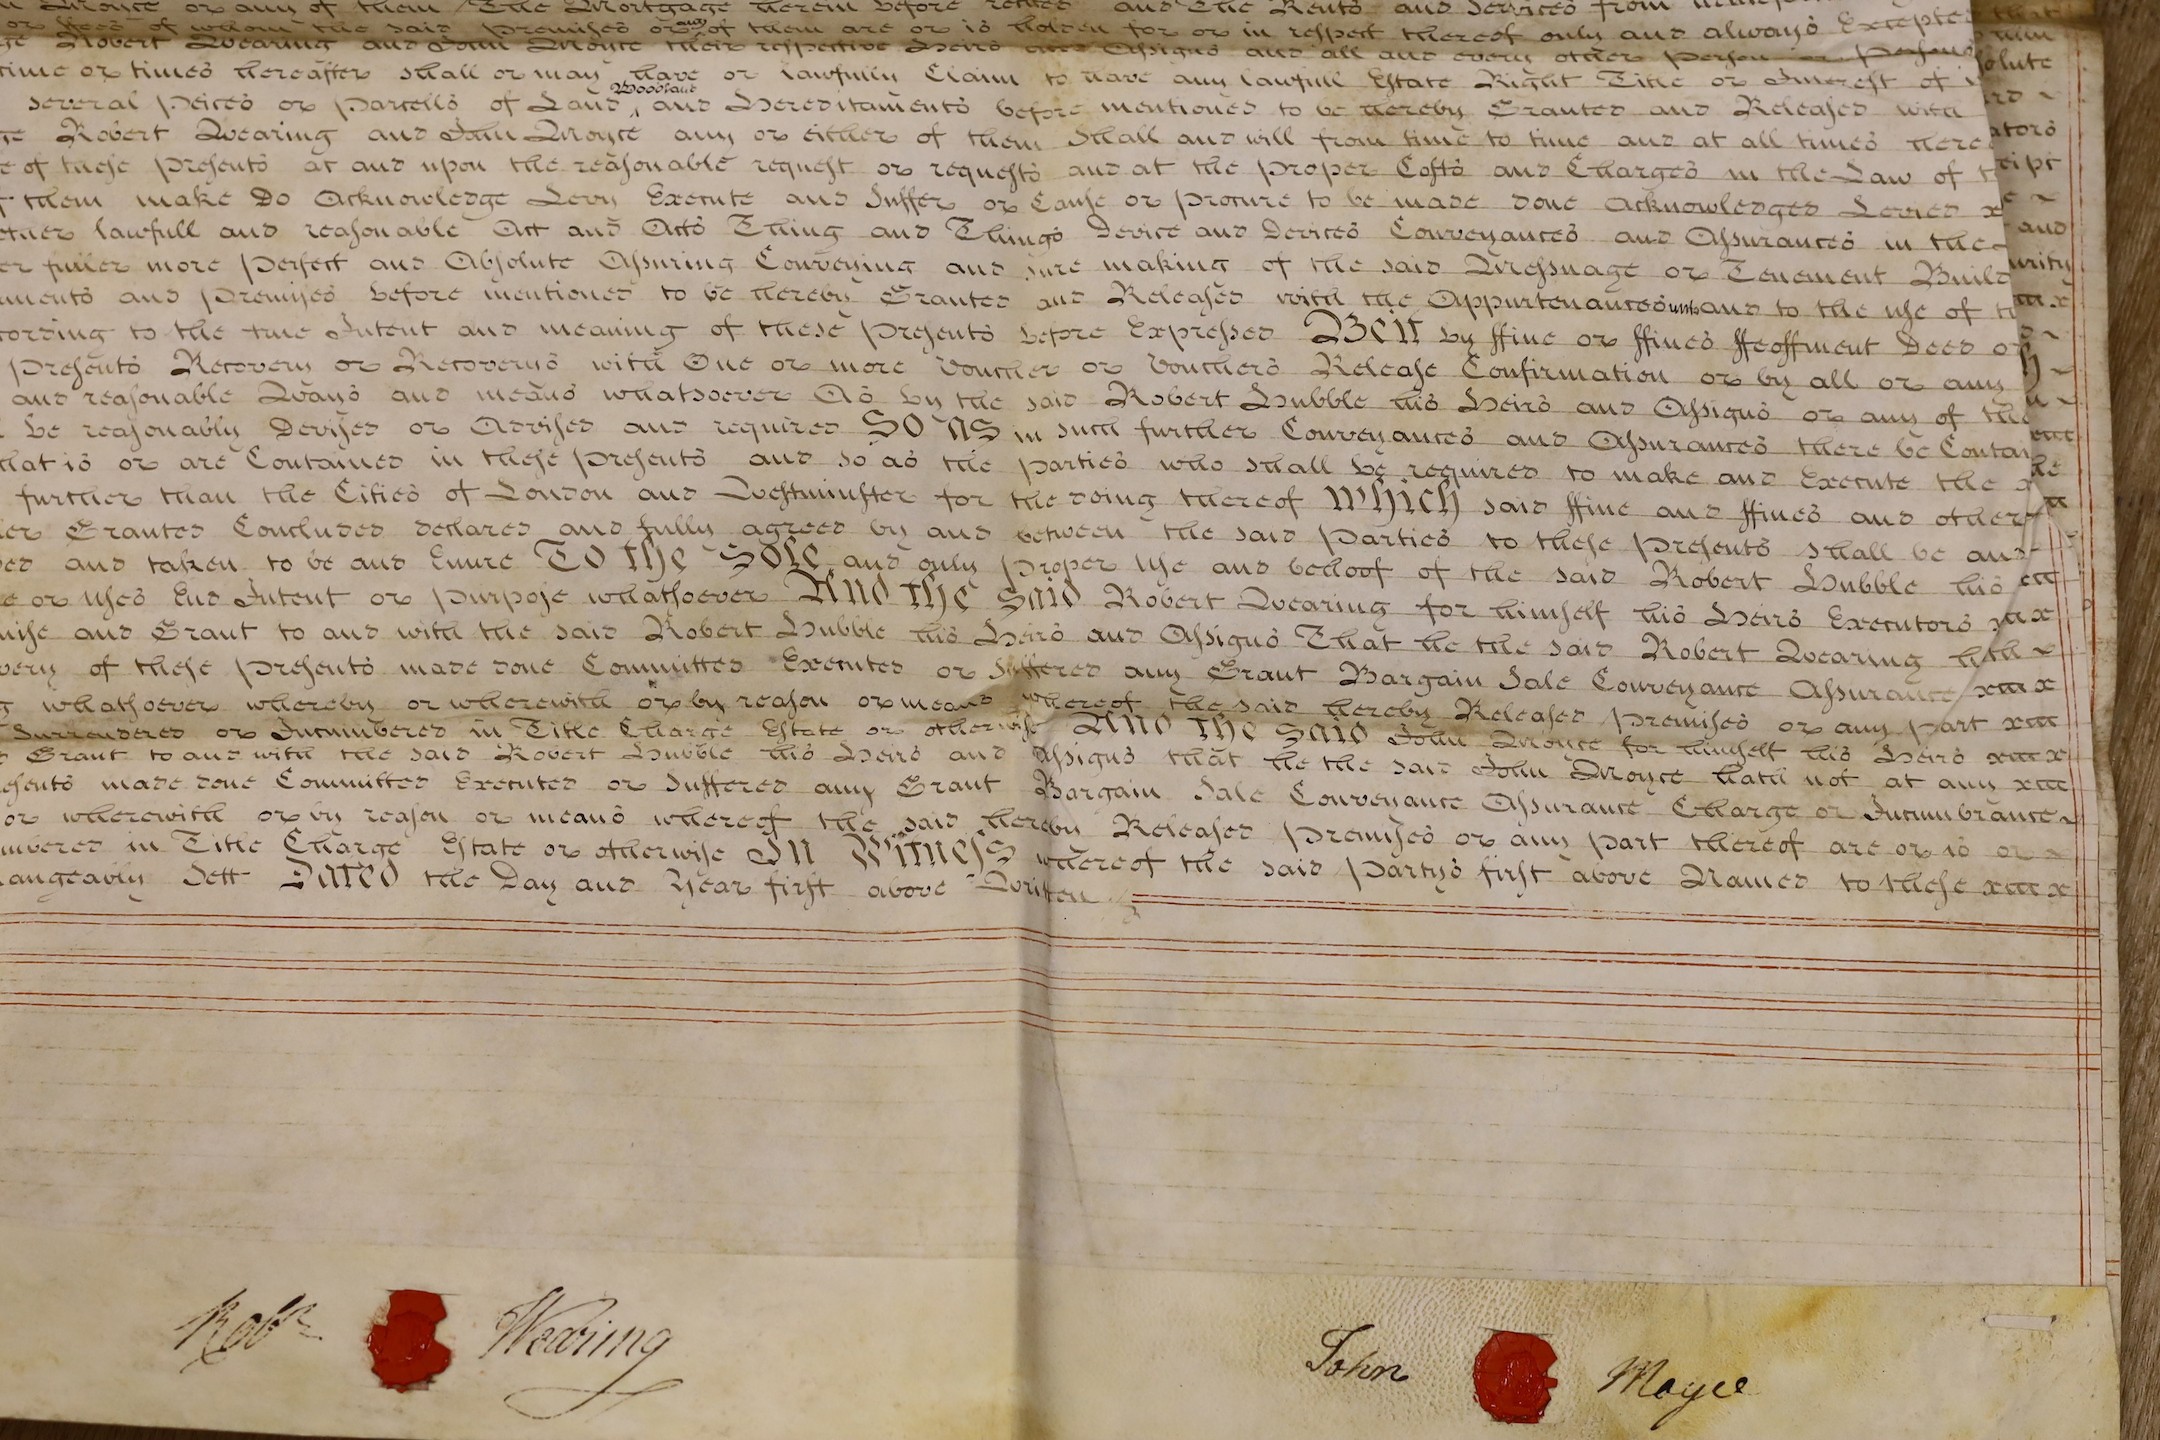 Moyce or any of them The Mortgage therein before recited and The Rents and Services from
or ffees of whom the said Premises or any of them are or is holden for or in respect thereof only and always Excepted that
ge Robert Wearing and John Moyce their respective Heirs and Assigns and all and every other Person or Persons
time or times hereafter shall or may have or lawfully Claim to have any lawfull Estate Right Title or Interest of solute
several Peices or Parcells of Land, Woodland and Hereditaments before mentioned to be hereby Granted and Released with
ge Robert Wearing and John Moyce any or either of them Shall and will from time to time and at all times there ators
e of these Presents at and upon the reasonable request or requests and at the Proper Costs and Charges in the Law of t ceipt
f them make Do Acknowledge Levy Execute and Suffer or Cause or Procure to be made done Acknowledged Levied x
ether lawfull and reasonable Act and Acts Thing and Things Device and Devices Conveyances and Assurances in the and
er fuller more Perfect and Absolute Assuring Conveying and sure making of the said Messuage or Tenement Build urity
ments and Premises before mentioned to be hereby Granted and Released with the Appurtenances unto and to the use of t
cording to the true Intent and meaning of these Presents before Expressed Be it by ffine or ffines ffeoffment Deed or
Presents Recovery or Recoverys with One or more Voucher or Vouchers Release Confirmation or by all or any
and reasonable Ways and means whatsoever As by the said Robert Hubble his Heirs and Assigns or any of the
be reasonably Devised or Advised and required So as in such further Conveyances and Assurances there be Contai
that is or are Contained in these Presents and so as the parties who shall be required to make and Execute the
further than the Cities of London and Westminster for the doing thereof Which said ffine and ffines and other
er Granted Concluded declared and fully agreed by and between the said Parties to these Presents shall be and
ed and taken to be and Enure To the Sole and only Proper Use and behoof of the said Robert Hubble his
e or Uses End Intent or Purpose whatsoever And the said Robert Wearing for himself his Heirs Executors
mise and Grant to and with the said Robert Hubble his Heirs and Assigns That he the said Robert Wearing hath
very of these Presents made done Committed Executed or Suffered any Grant Bargain Sale Conveyance Assurance
g whatsoever whereby or wherewith or by reason or means whereof the said hereby Released Premises or any part
Surrendered or Incumbered in Title Charge Estate or otherwise And the said John Moyce for himself his Heirs
Grant to and with the said Robert Hubble his Heirs and Assigns that he the said John Moyce hath not at any
esents made done Committed Executed or Suffered any Grant Bargain Sale Conveyance Assurance Charge or Incumbrance
or wherewith or by reason or means whereof the said hereby Released Premises or any part thereof are or is or
umbered in Title Charge Estate or otherwise In Witness whereof the said Partys first above Named to these
angeably Sett Dated the Day and Year first above Written
Robt Wearing
John Moyce